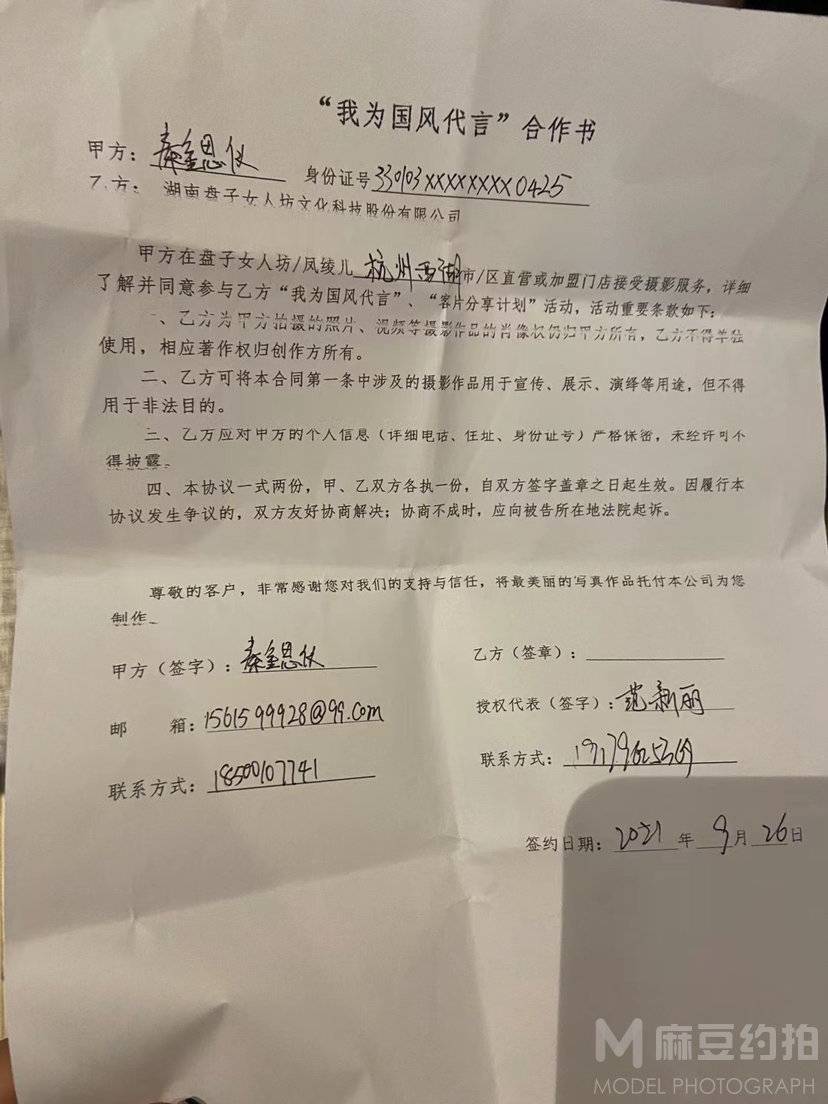 “我为国风代言”合作书
甲方：秦金恩仪 身份证号330103XXXXXXXX0425
乙方：湖南盘子女人坊文化科技股份有限公司
甲方在盘子女人坊/凤绫儿杭州西湖市/区直营或加盟门店接受摄影服务，详细
了解并同意参与乙方“我为国风代言”、“客片分享计划”活动，活动重要条款如下：
一、乙方为甲方拍摄的照片、视频等摄影作品的肖像权仍归甲方所有，乙方不得单独
使用，相应著作权归创作方所有。
二、乙方可将本合同第一条中涉及的摄影作品用于宣传、展示、演绎等用途，但不得
用于非法目的。
三、乙方应对甲方的个人信息（详细电话、住址、身份证号）严格保密，未经许可不
得披露。
四、本协议一式两份，甲、乙双方各执一份，自双方签字盖章之日起生效。因履行本
协议发生争议的，双方友好协商解决；协商不成时，应向被告所在地法院起诉。
尊敬的客户，非常感谢您对我们的支持与信任，将最美丽的写真作品托付本公司为您
制作。
甲方（签字）：秦金恩仪
乙方（签章）：
邮 箱：1561599928@qq.com
授权代表（签字）：范新丽
联系方式：18500107741
联系方式：
签约日期：2021年9月26日
麻豆约拍
MODEL PHOTOGRAPH